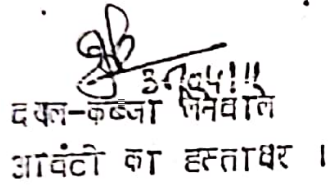 दखल-कब्जा लेनेवाले
आवंटी का हस्ताक्षर ।